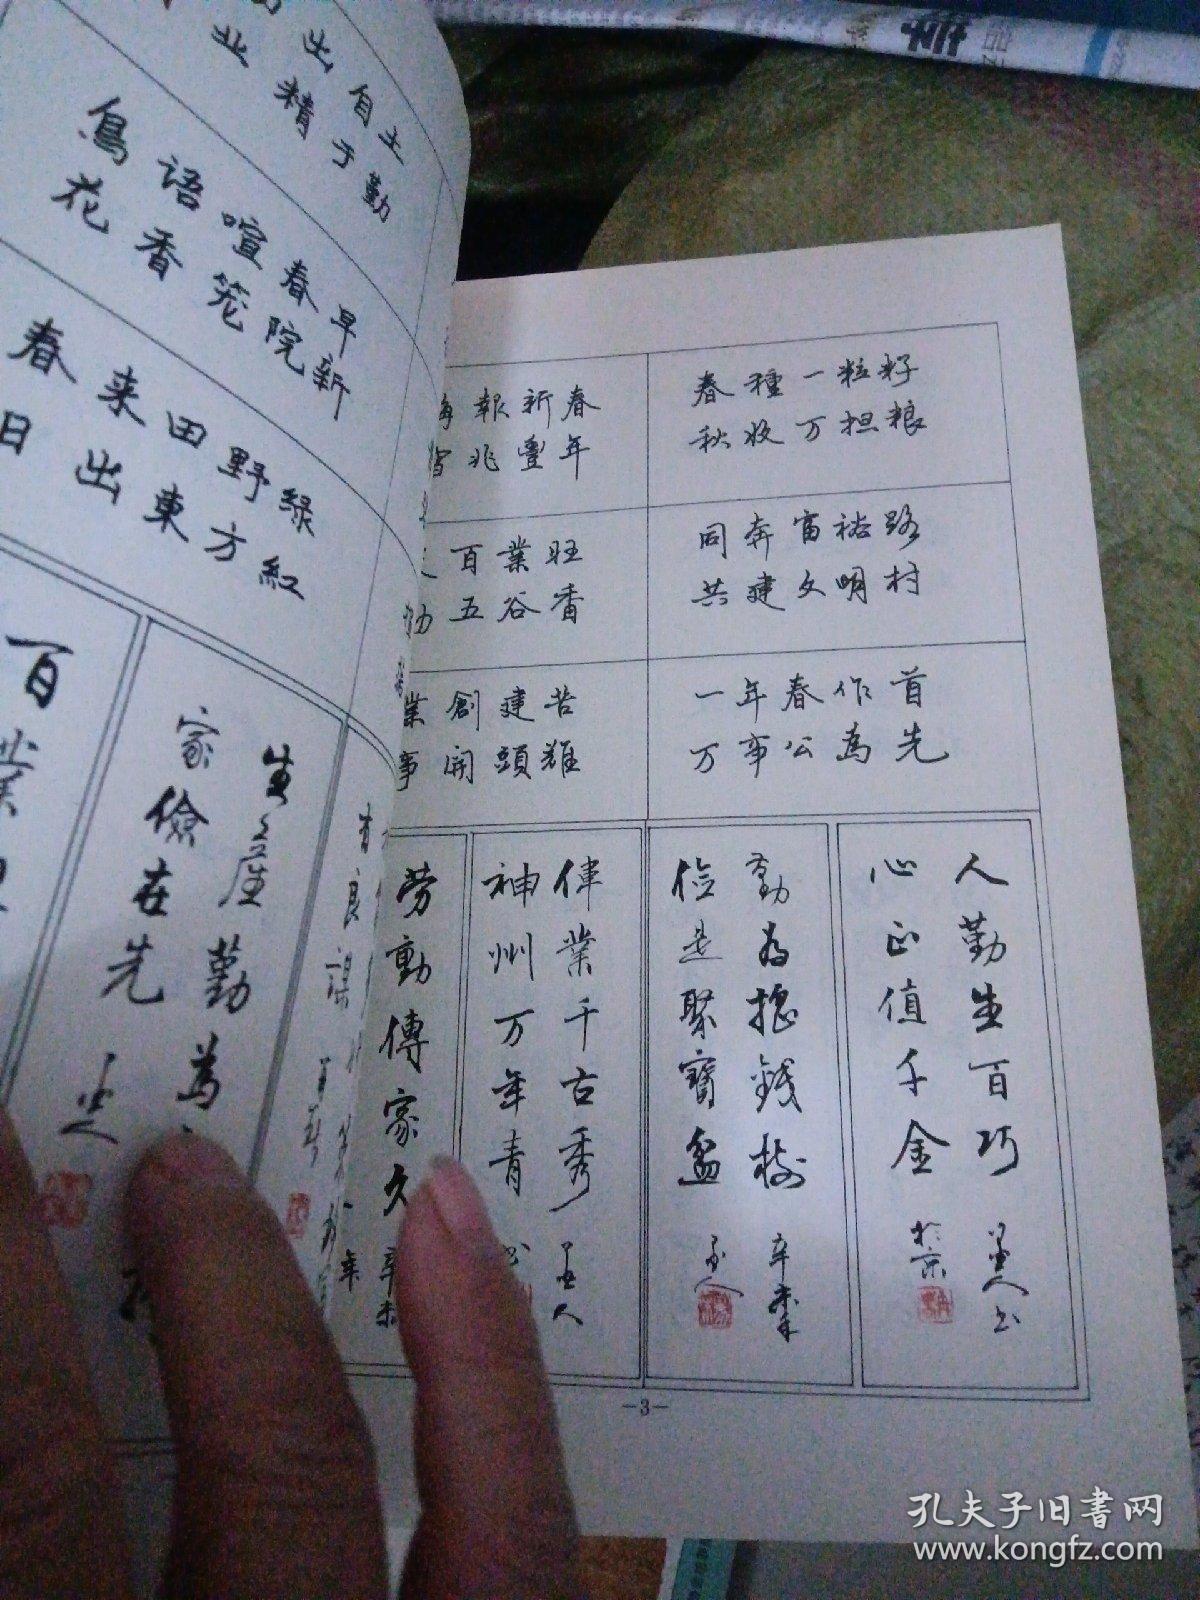 出自土
业精于勤
鳥语喧春早
花香笼院新
春来田野绿
日出東方紅
百業
生産勤為
家儉在先
報新春
兆豐年
百業旺
五谷香
業創建苦
事開頭難
春種一粒籽
秋收万担粮
同奔富裕路
共建文明村
一年春作首
万事公為先
人勤生百巧
心正值千金
於京
勤为摇钱樹
儉是聚寶盆
辛未
偉業千古秀
神州万年青
劳動傳家久
辛未年
-3-
孔夫子旧书网
www.kongfz.com